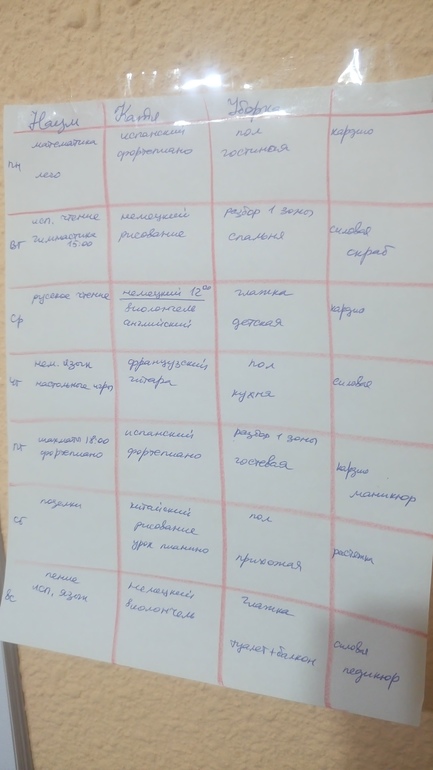 Наум Катя Уборка
пн
математика
лего
испанский
фортепиано
пол
гостиная
кардио
вт
исп. чтение
гимнастика
15:00
немецкий
рисование
разбор 1 зоны
спальня
силовая
скраб
ср
русское чтение
немецкий 12⁰⁰
виолончель
английский
глажка
детская
кардио
чт
нем. язык
настольные игры
французский
гитара
пол
кухня
силовая
пт
шахматы 18:00
фортепиано
испанский
фортепиано
разбор 1 зоны
гостевая
кардио
маникюр
сб
поделки
китайский
рисование
урок пианино
пол
прихожая
растяжка
вс
пение
исп. язык
немецкий
виолончель
глажка
туалет+балкон
силовая
педикюр